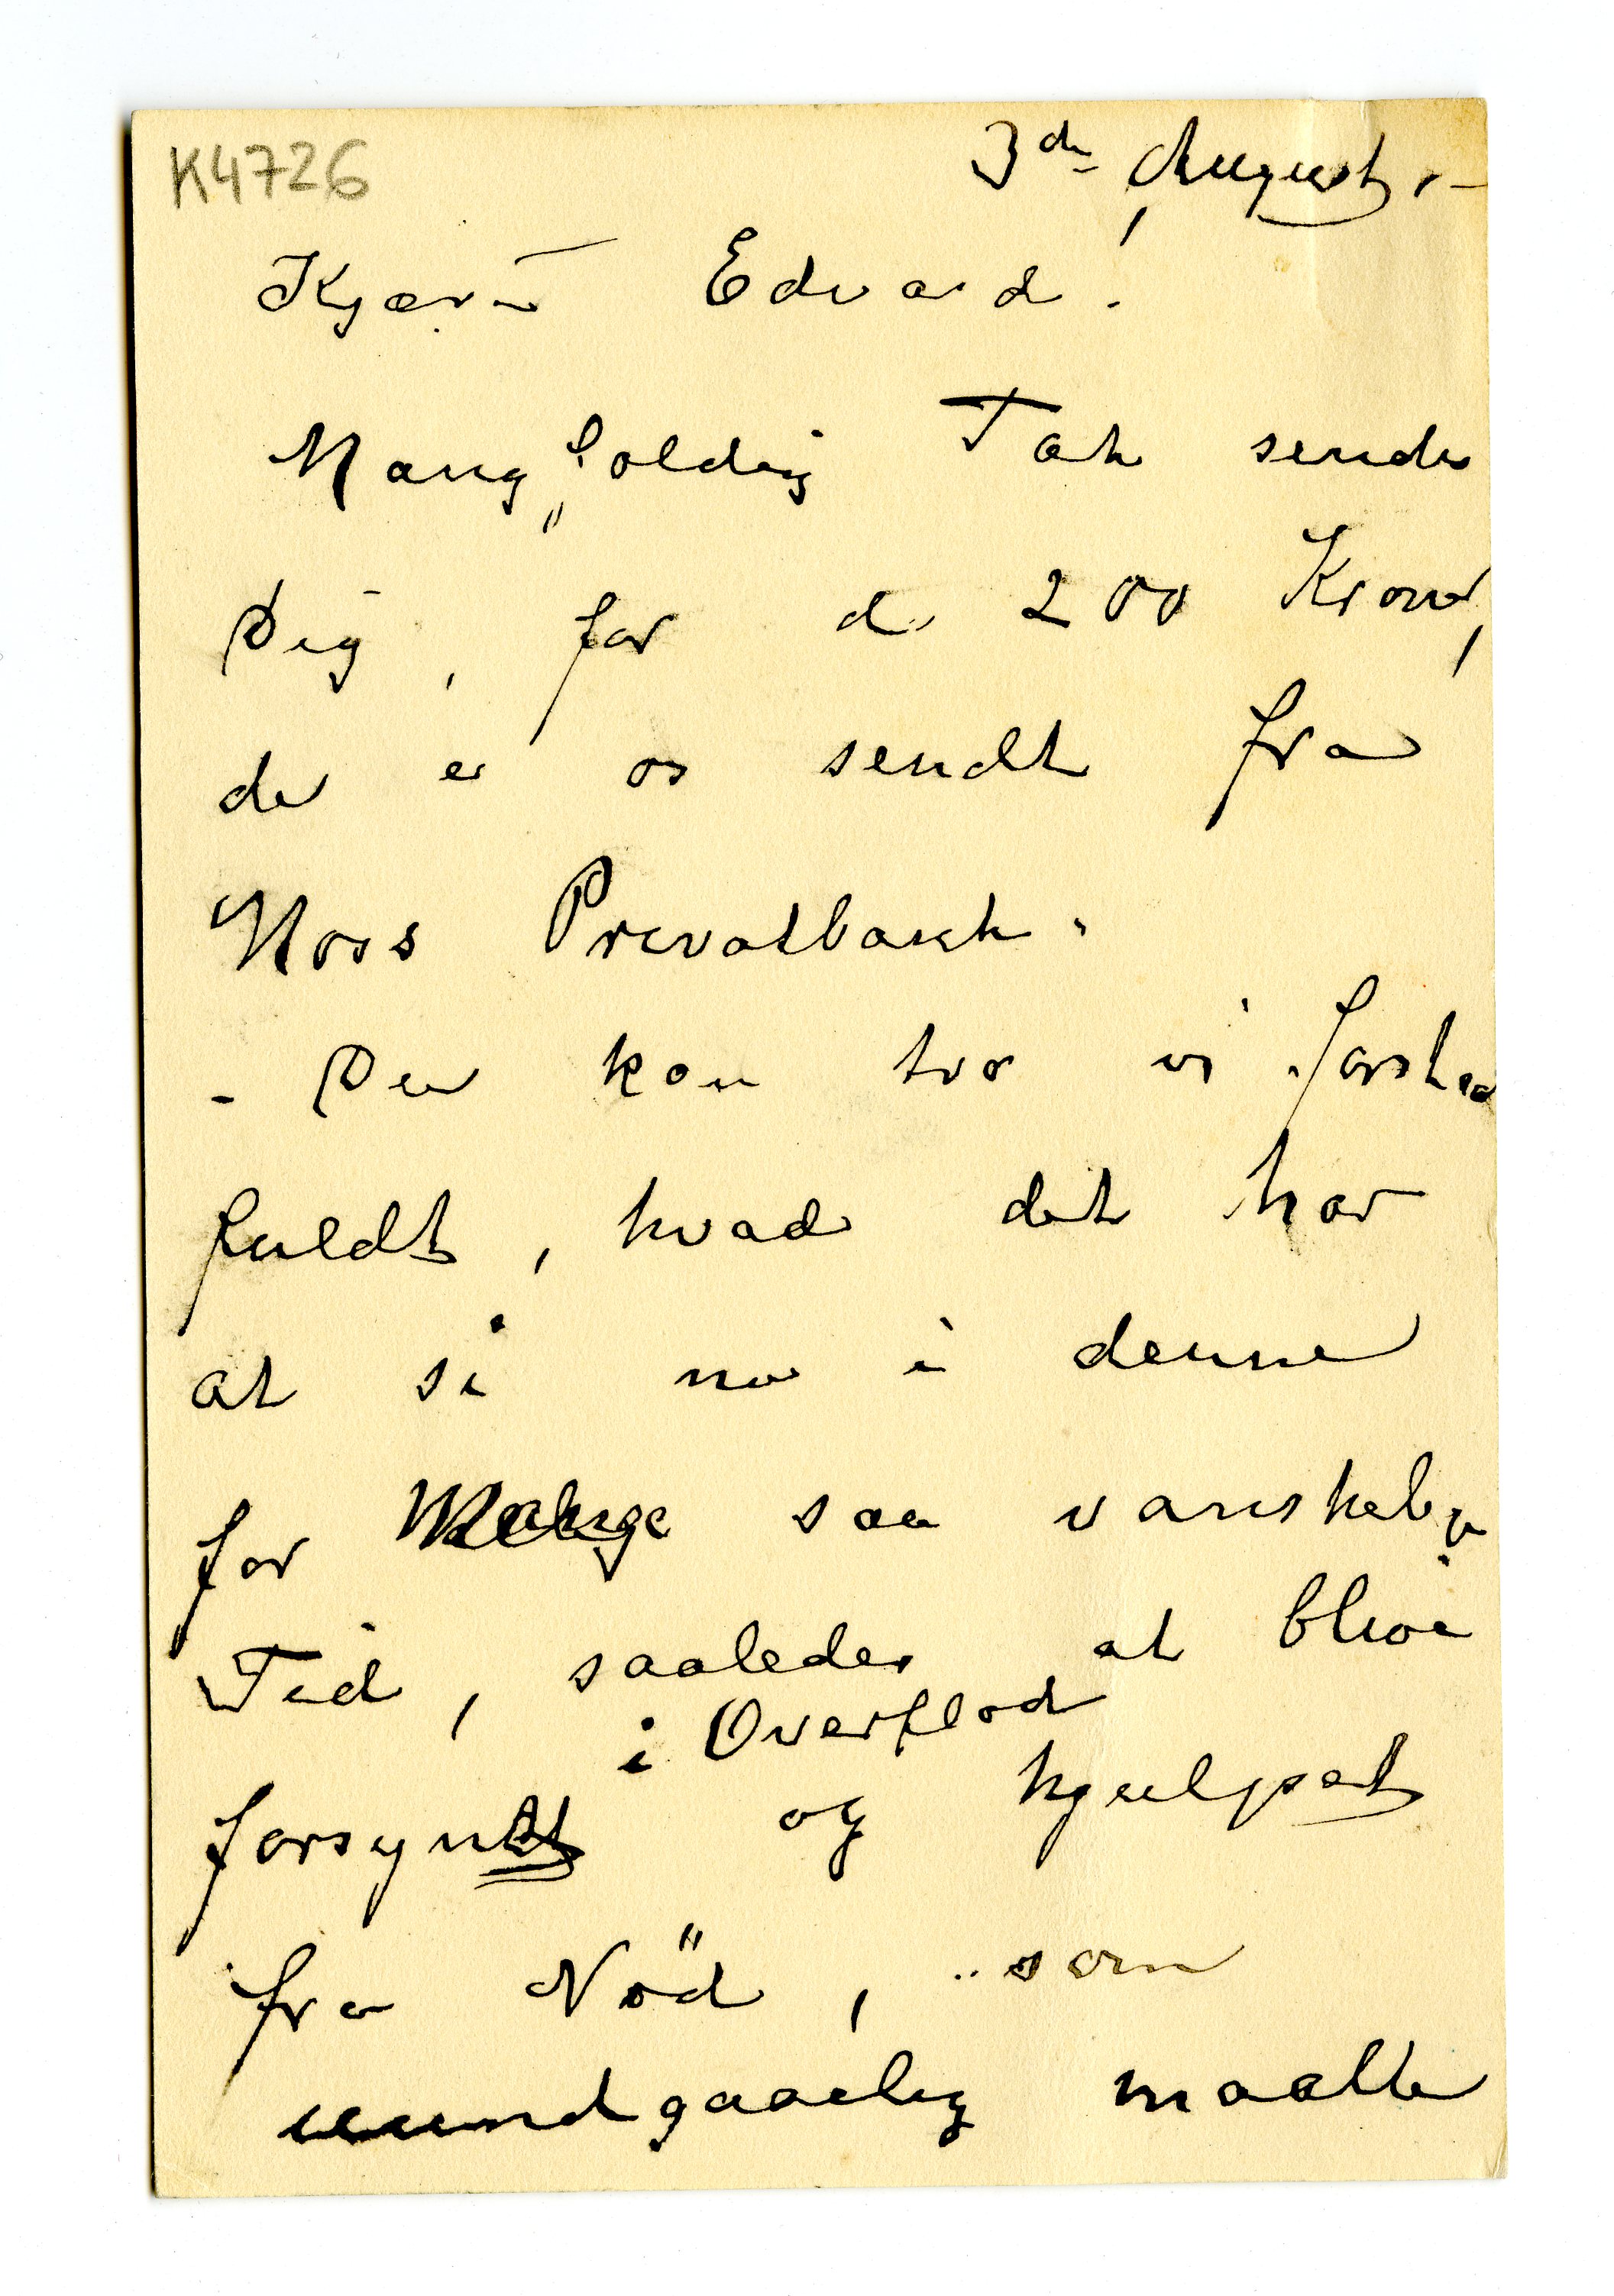 K4726
3de August. –
Kjære Edvard!
Mangfoldig Tak sendes
Dig, for de 200 Kroner,
der er os sendt fra
Moss Privatbank.
– Du kan tro vi forstaa
fuldt, hvad det har
at si nu i denne
for Mange saa vanskelige
Tid, saaledes at blive
i Overflod
forsynet og hjulpet
fra Nöd, som
uundgaaelig maatte